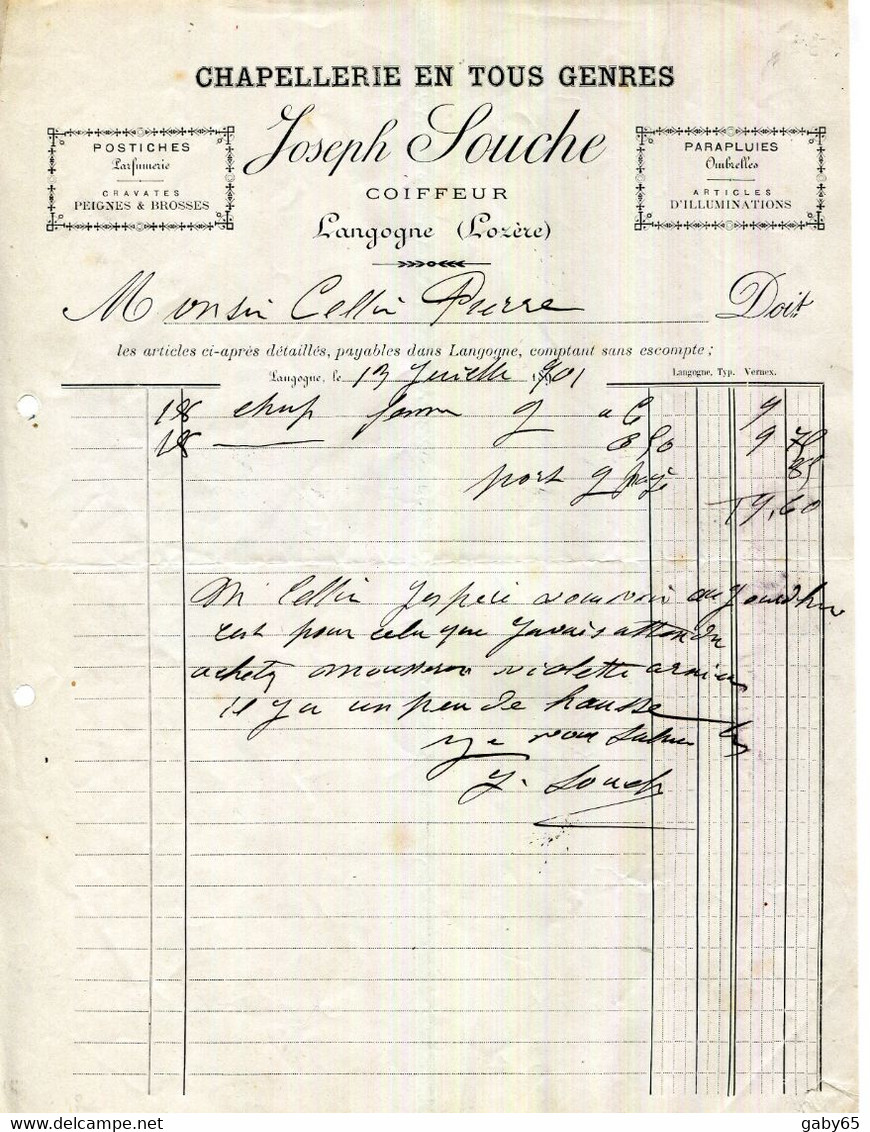 CHAPELLERIE EN TOUS GENRES
POSTICHES
Parfumerie
CRAVATES
PEIGNES & BROSSES
Joseph Souche
COIFFEUR
Langogne (Lozère)
PARAPLUIES
Ombrelles
ARTICLES
D'ILLUMINATIONS
M onsieur Cellier Pierre Doit
les articles ci-après détaillés, payables dans Langogne, comptant sans escompte;
Langogne, le 13 Juillet 1901
Langogne, Typ. Vernex.
chap 9
8 50 9
port payé 85
19,60
Mr Cellier J'espère vous voir aujourd'hui
c'est pour cela que J'avais attendu
achetez mousseron violette arnica
il y a un peu de hausse
vous salue
J. Souche
gaby65